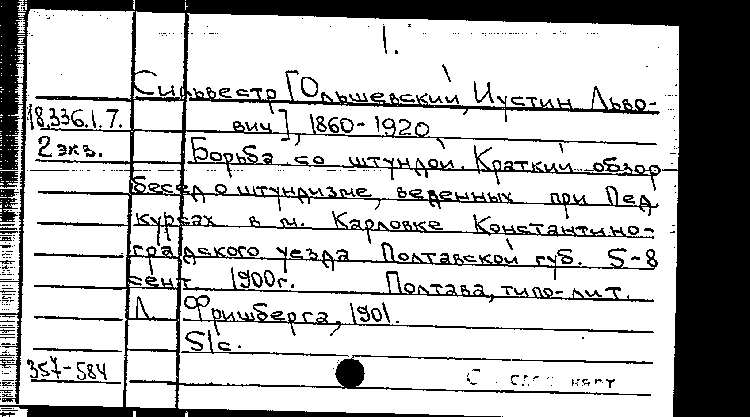 1.
Сильвестр [Ольшевский, Иустин Льво-
18.336.1.7. вич], 1860-1920
2 экз. Борьба со штундой. Краткий обзор
бесед о штундизме, веденных при Пед
курсах в м. Карловке Константино-
градского уезда Полтавской губ. 5-8
сент. 1900г. Полтава, типо-лит.
Л. Фришберга, 1901.
51с.
357-584